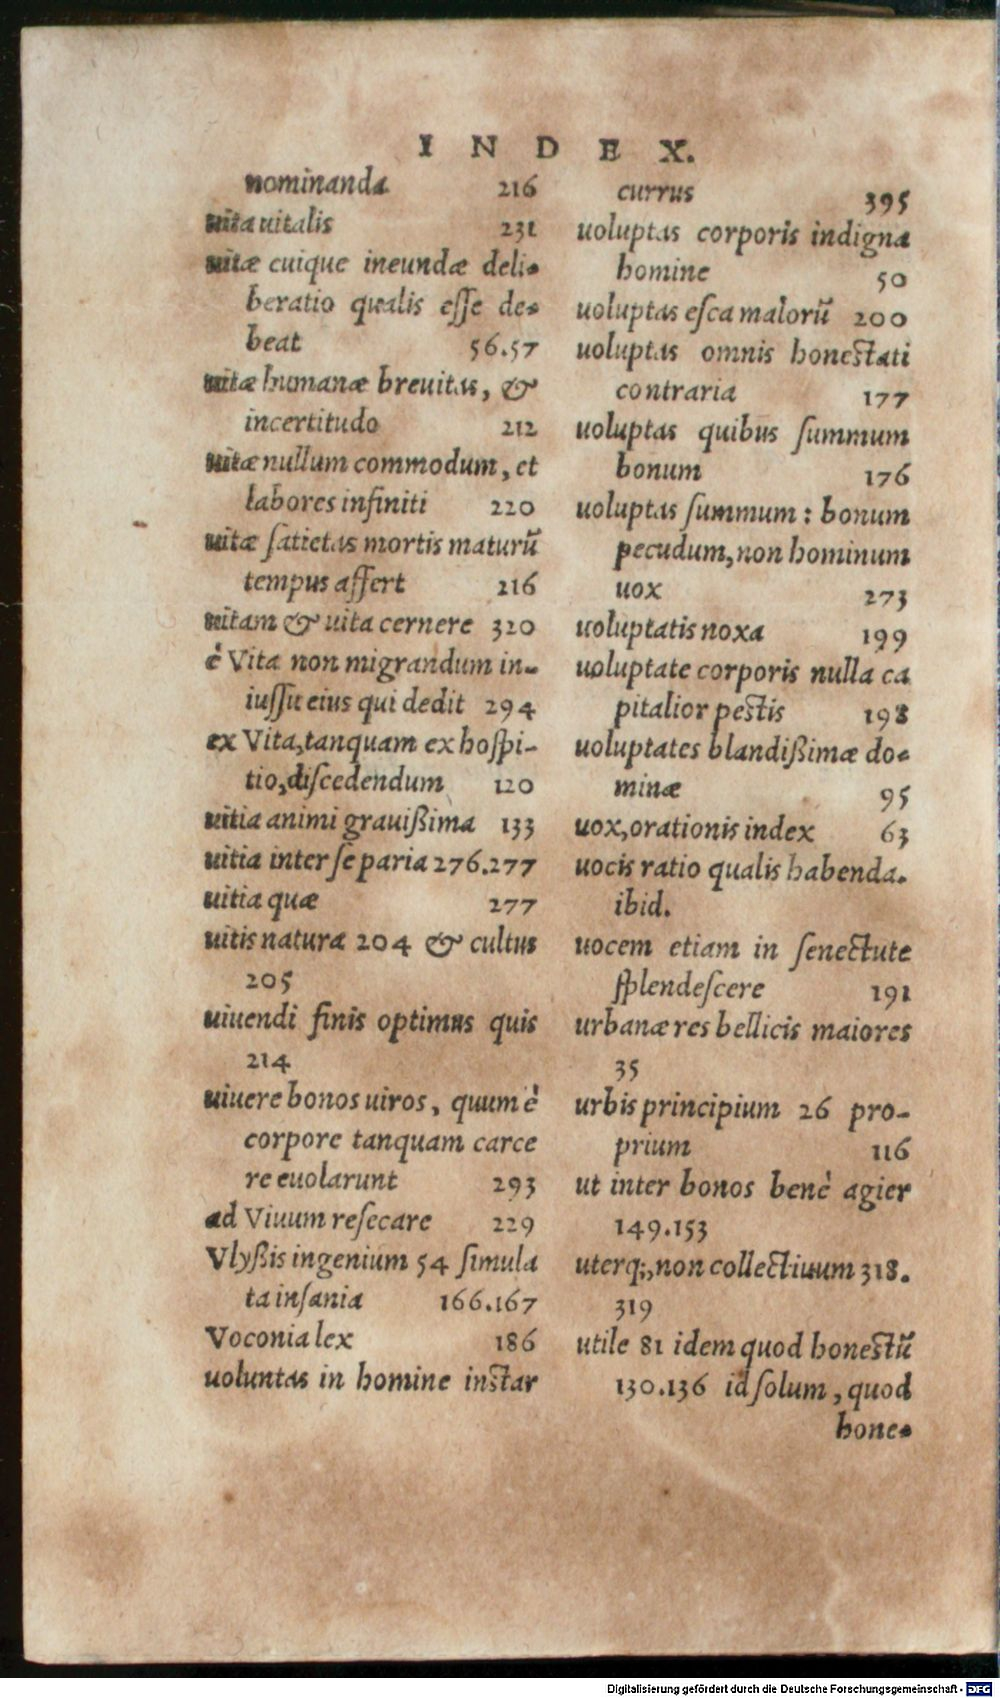 INDEX.
nominanda 216
uita uitalis 231
uitæ cuique ineundæ deli-
beratio qualis eſſe de-
beat 56.57
uitæ humanæ breuitas, &
incertitudo 212
uitæ nullum commodum, et
labores infiniti 220
uitæ ſatietas mortis maturū
tempus affert 216
uitam & uita cernere 320
è Vita non migrandum in-
iuſſu eius qui dedit 294
ex Vita, tanquam ex hoſpi-
tio, diſcedendum 120
uitia animi grauißima 133
uitia inter ſe paria 276.277
uitia quæ 277
uitis natura 204 & cultus
205
uiuendi finis optimus quis
214
uiuere bonos uiros, quum è
corpore tanquam carce
re euolarunt 293
ad Viuum reſecare 229
Vlyßis ingenium 54 ſimula
ta inſania 166.167
Voconia lex 186
uoluntas in homine inſtar
currus 395
uoluptas corporis indigna
homine 50
uoluptas eſca malorū 200
uoluptas omnis honeſtati
contraria 177
uoluptas quibus ſummum
bonum 176
uoluptas ſummum: bonum
pecudum, non hominum
uox 273
uoluptatis noxa 199
uoluptate corporis nulla ca
pitalior peſtis 198
uoluptates blandißimæ do-
minæ 95
uox, orationis index 63
uocis ratio qualis habenda.
ibid.
uocem etiam in ſenectute
ſplendeſcere 191
urbanæ res bellicis maiores
35
urbis principium 26 pro-
prium 116
ut inter bonos benè agier
149.153
uterq;, non collectiuum 318.
319
utile 81 idem quod honeſtū
130.136 id ſolum, quod
hone-
Digitalisierung gefördert durch die Deutsche Forschungsgemeinschaft - DFG